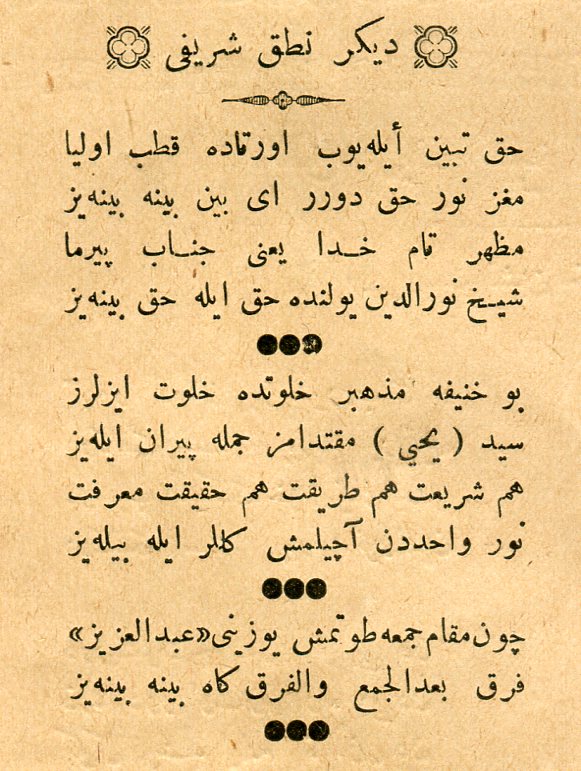 ديكر نطق شريفى
حق تبين أيله‌يوب اورتاده قطب اوليا
مغز نور حق دورر اى بين بينه بينه‌يز
مظهر تام خدا يعنى جناب پيرما
شيخ نورالدين يولنده حق ايله حق بينه‌يز
بو خنيفه مذهبر خلوتده خلوت ايزلرز
سيد ( يحيي ) مقتدامز جمله پيران ايله‌يز
هم شريعت هم طريقت هم حقيقت معرفت
نور واحددن آچيلمش كاللر ايله بيله‌يز
چون مقام جمعه طوتمش يوزينى «عبدالعزيز»
فرق بعدالجمع والفرق كاه بينه بينه‌يز